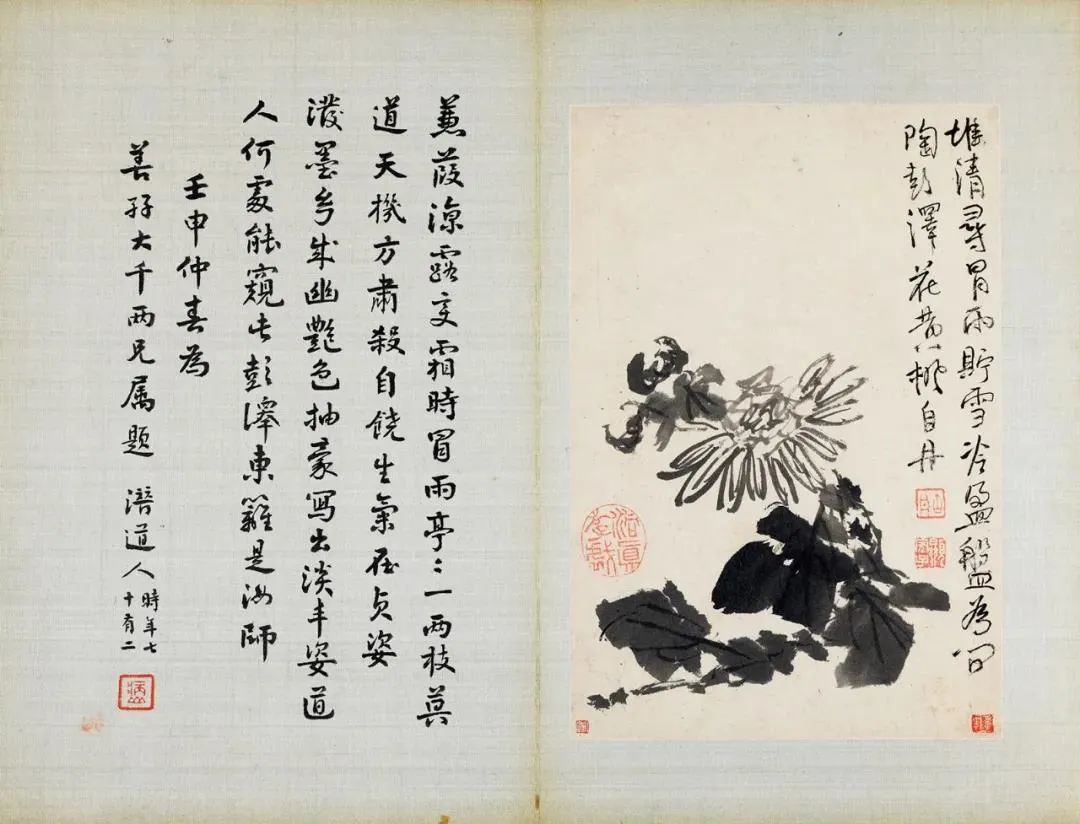 清尋冒雨貯雪冷盈盤為問
陶彭澤花黃自丹
蒹葭凉露变霜時冒雨亭〻一兩枝莫
道天機方肅殺自饒生氣在貞姿
潑墨成幽艷色抽豪寫出淡丰姿道
人何處能窺出彭澤東籬是汝師
壬申仲春為
善孖大千兩兄属題 潛道人
時年七
十有二
病山